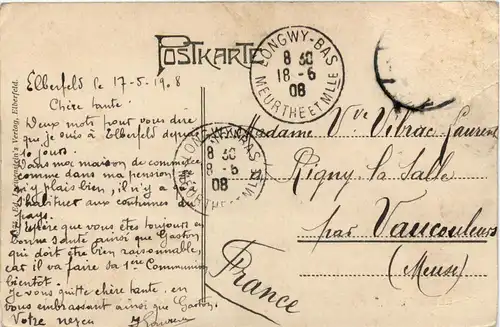 POSTKARTE
LONGWY-BAS
8 30
18 - 6
08
MEURTHE ET MLLE
Elberfeld le 17-5-1908
Chère tante.
Deux mots pour vous dire
que je suis à Elberfeld depuis
jours.
Dans mon maison de commerce
comme dans ma pension
m'y plais bien, il n'y a
s'habituer aux coutumes du
pays.
J'espère que vous êtes toujours en
bonne santé ainsi que Gaston
qui doit être bien raisonnable,
car il va faire sa 1ère Communion
bientôt.
Je vous quitte chère tante, en
vous embrassant ainsi que Gaston.
Votre neveu
LONGWY-BAS
8 30
8 - 6
08
MEURTHE ET MLLE
Madame Vve Vitrac Laurent
Rigny la Salle
par Vaucouleurs
(Meuse)
France
Verlag, Elberfeld.